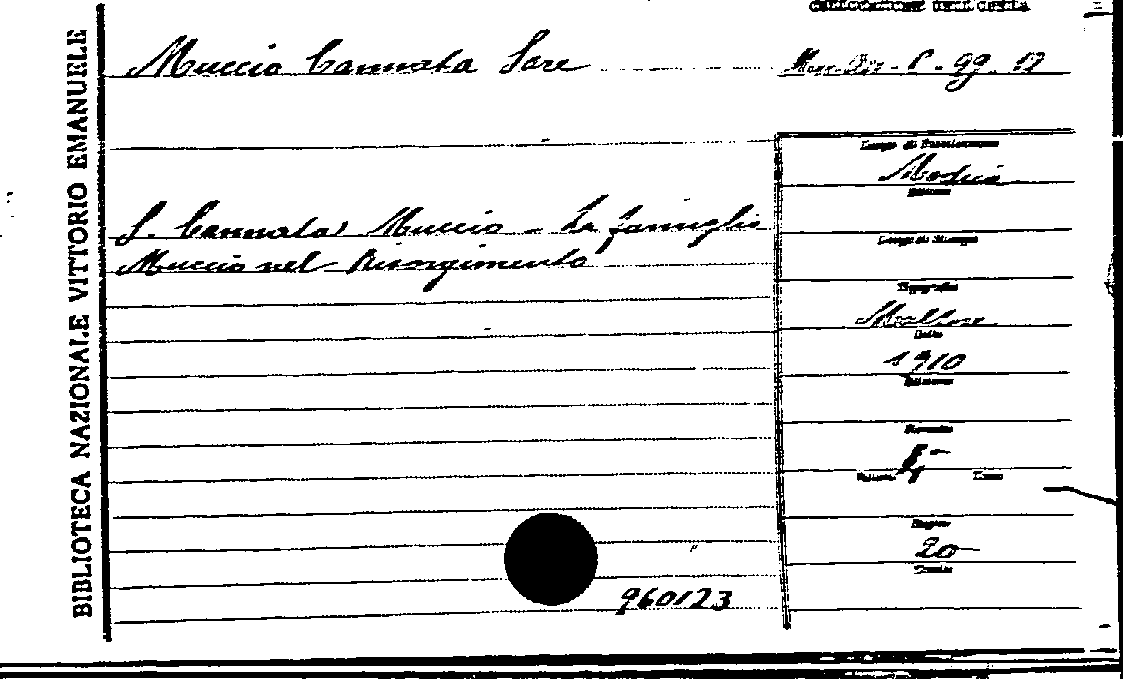 BIBLIOTECA NAZIONALE VITTORIO EMANUELE
COLLOCAZIONE DELL'OPERA
Muccio Cannata Sare
C - 99. 12
S. Cannata Muccio - La famiglia
Muccio nel Risorgimento
Luogo di Pubblicazione
Modica
Editore
Luogo di Stampa
Tipografia
Data
1910
Edizione
Formato
8-
Volumi
Tomo
Pagine
20
Tavole
960123